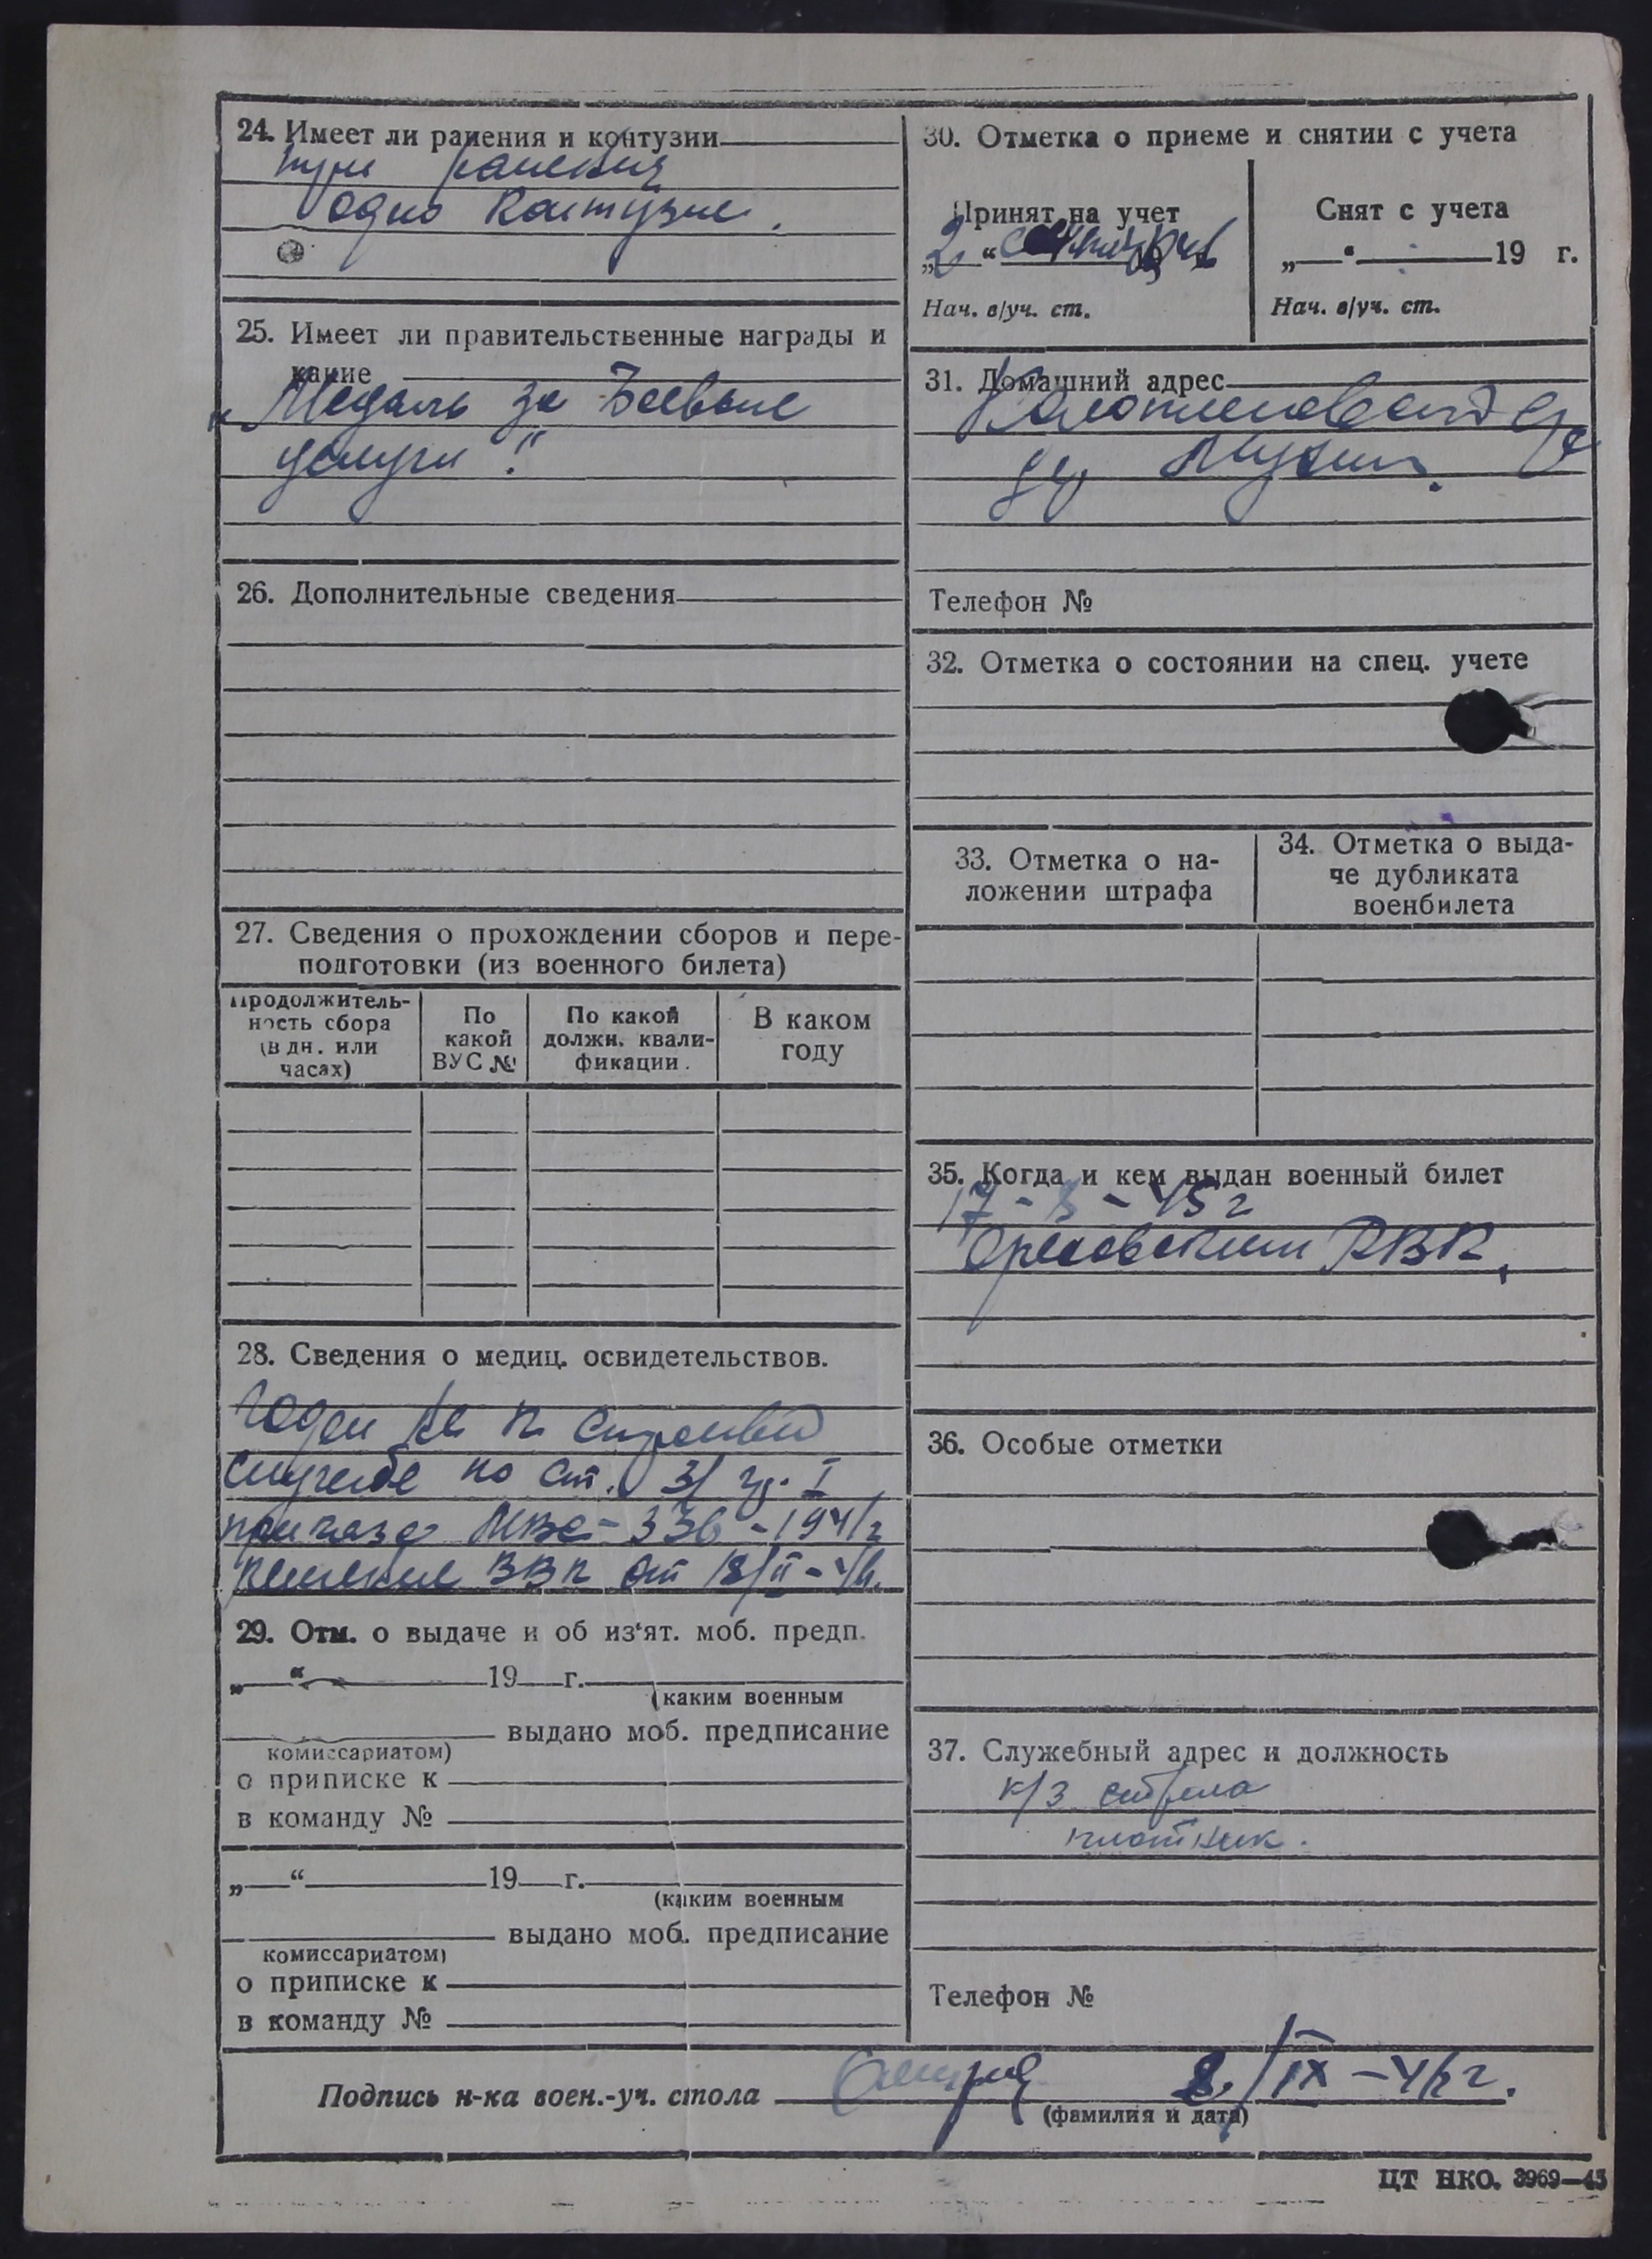 24. Имеет ли ранения и контузии
три ранения
одно контузие.
25. Имеет ли правительственные награды и
какие
„Медаль за Боевые
услуги".
26. Дополнительные сведения
27. Сведения о прохождении сборов и пере-
подготовки (из военного билета)
Продолжитель-
ность сбора
(в дн. или
часах)
По
какой
ВУС №
По какой
должн. квали-
фикации.
В каком
году
28. Сведения о медиц. освидетельствов.
Годен не к строевой
службе по ст. 31 гр. I
приказа 336 - 1941г
решение ВВК от
29. Отм. о выдаче и об из'ят. моб. предп.
„ “ 19 г.
(каким военным
выдано моб. предписание
комиссариатом)
о приписке к
в команду №
„ “ 19 г.
(каким военным
выдано моб. предписание
комиссариатом)
о приписке к
в команду №
30. Отметка о приеме и снятии с учета
Принят на учет
„2 “
Нач. в/уч. ст.
Снят с учета
„ “ 19 г.
Нач. в/уч. ст.
31. Домашний адрес
Телефон №
32. Отметка о состоянии на спец. учете
33. Отметка о на-
ложении штрафа
34. Отметка о выда-
че дубликата
военбилета
35. Когда и кем выдан военный билет
17 - - 45 г
РВК.
36. Особые отметки
37. Служебный адрес и должность
к/з стрела
плотник.
Телефон №
Подпись н-ка воен.-уч. стола 8/IX - г.
(фамилия и дата)
ЦТ НКО. 3969—45